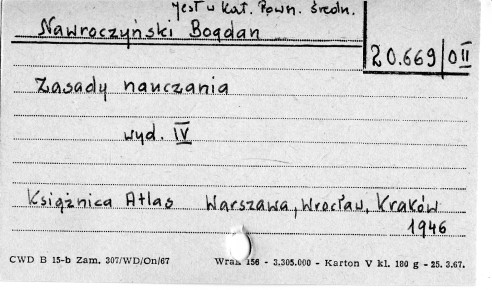 Jest w kat. Pown. średn.
Nawroczyński Bogdan
20.669/0II
Zasady nauczania
wyd. IV
Książnica Atlas Warszawa, Wrocław, Kraków
1946
CWD B 15-b Zam. 307/WD/On/67 156 - 3.305.000 - Karton V kl. 180 g - 25. 3.67.